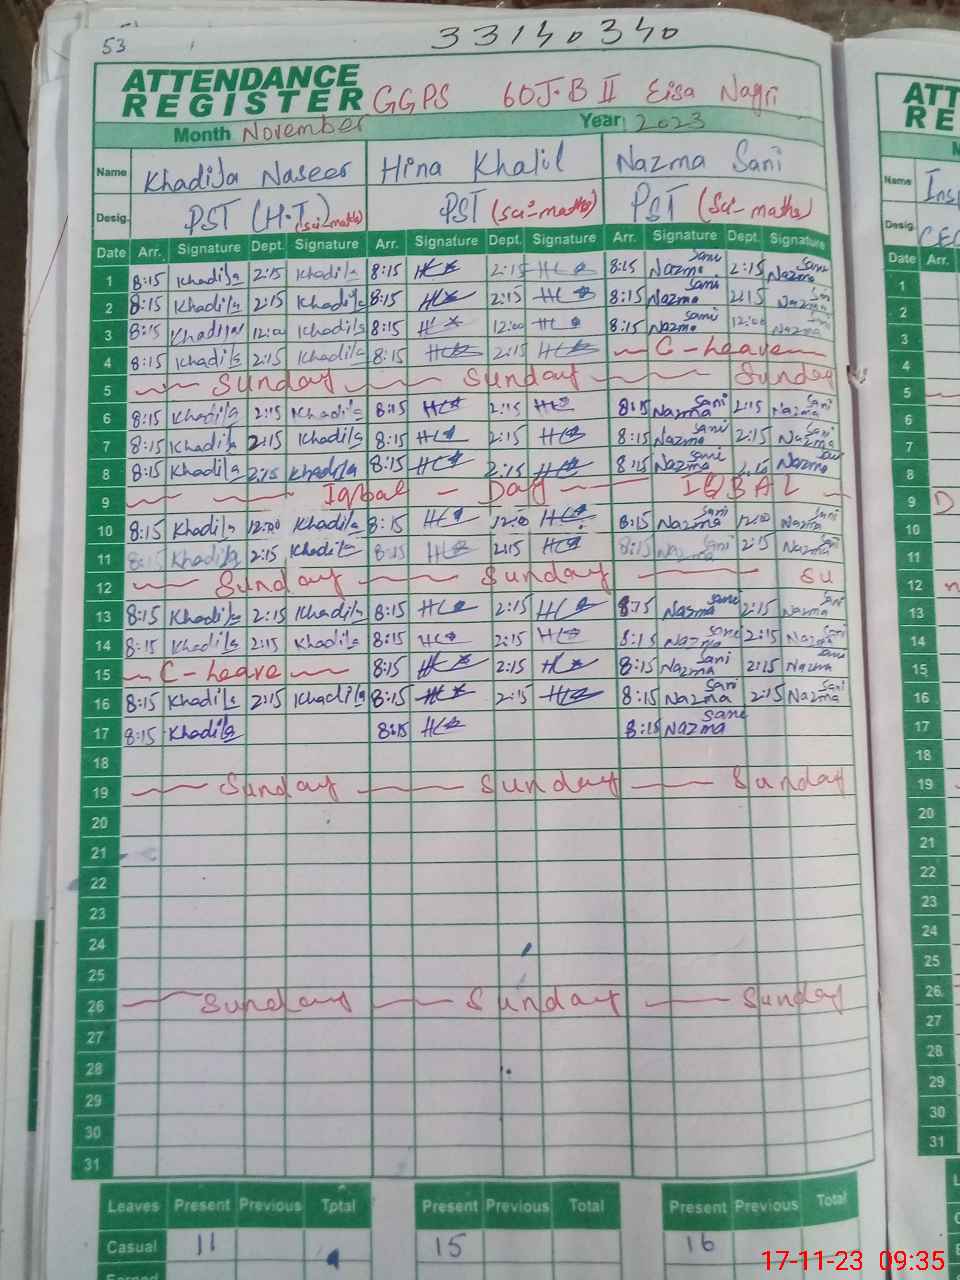 53
33140340
ATTENDANCE
REGISTER GGPS 60J.B II Eisa Nagri
Month November Year 2023
Name Khadija Naseer Hina Khalil Nazma Sani
Desig. PST (H.T) (sci-maths) PST (sci-maths) PST (Sci-maths)
Date Arr. Signature Dept. Signature Arr. Signature Dept. Signature Arr. Signature Dept. Signature
1 8:15 Khadija 2:15 Khadija 8:15 2:15 8:15 Nazma Sani 2:15 Nazma Sani
2 8:15 Khadija 2:15 Khadija 8:15 2:15 8:15 Nazma Sani 2:15 Nazma Sani
3 8:15 Khadija 12:00 Khadija 8:15 12:00 8:15 Nazma Sani 12:00 Nazma Sani
4 8:15 Khadija 2:15 Khadija 8:15 2:15 C-Leave
5 Sunday Sunday Sunday
6 8:15 Khadija 2:15 Khadija 8:15 2:15 8:15 Nazma Sani 2:15 Nazma Sani
7 8:15 Khadija 2:15 Khadija 8:15 2:15 8:15 Nazma Sani 2:15 Nazma Sani
8 8:15 Khadija 2:15 Khadija 8:15 2:15 8:15 Nazma Sani 2:15 Nazma Sani
9 Iqbal - Day IQBAL
10 8:15 Khadija 12:00 Khadija 8:15 12:00 8:15 Nazma Sani 12:00 Nazma Sani
11 8:15 Khadija 2:15 Khadija 8:15 2:15 8:15 Nazma Sani 2:15 Nazma Sani
12 Sunday Sunday Su
13 8:15 Khadija 2:15 Khadija 8:15 2:15 8:15 Nazma Sani 2:15 Nazma Sani
14 8:15 Khadija 2:15 Khadija 8:15 2:15 8:15 Nazma Sani 2:15 Nazma Sani
15 C-Leave 8:15 2:15 8:15 Nazma Sani 2:15 Nazma Sani
16 8:15 Khadija 2:15 Khadija 8:15 2:15 8:15 Nazma Sani 2:15 Nazma Sani
17 8:15 Khadija 8:15 8:15 Nazma Sani
18
19 Sunday Sunday Sunday
20
21
22
23
24
25
26 Sunday Sunday Sunday
27
28
29
30
31
Leaves Present Previous Total Present Previous Total Present Previous Total
Casual 11 15 16
ATT
RE
Name Insp
Desig. CEO
Date Arr.
1
2
3
4
5
6
7
8
9 D
10
11
12
13
14
15
16
17
18
19
20
21
22
23
24
25
26
27
28
29
30
31
17-11-23 09:35